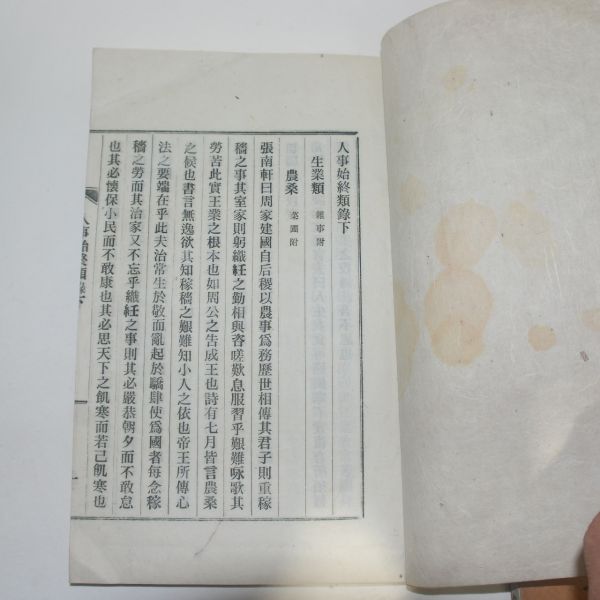 人事始終類錄下
生業類 雜事附
農桑 菜圃附
張南軒曰周家建國自后稷以農事爲務歷世相傳其君子則重稼
穡之事其室家則躬織紝之勤相與咨嗟歎息服習乎艱難咏歌其
勞苦此實王業之根本也如周公之告成王也詩有七月皆言農桑
之候也書言無逸欲其知稼穡之艱難知小人之依也帝王所傳心
法之要端在乎此夫治常生於敬而亂起於驕肆使爲國者每念稼
穡之勞而其治家又不忘乎織紝之事則其必嚴恭朝夕而不敢怠
也其必懷保小民而不敢康也其必思天下之飢寒而若己飢寒也
人事始終類錄下
一